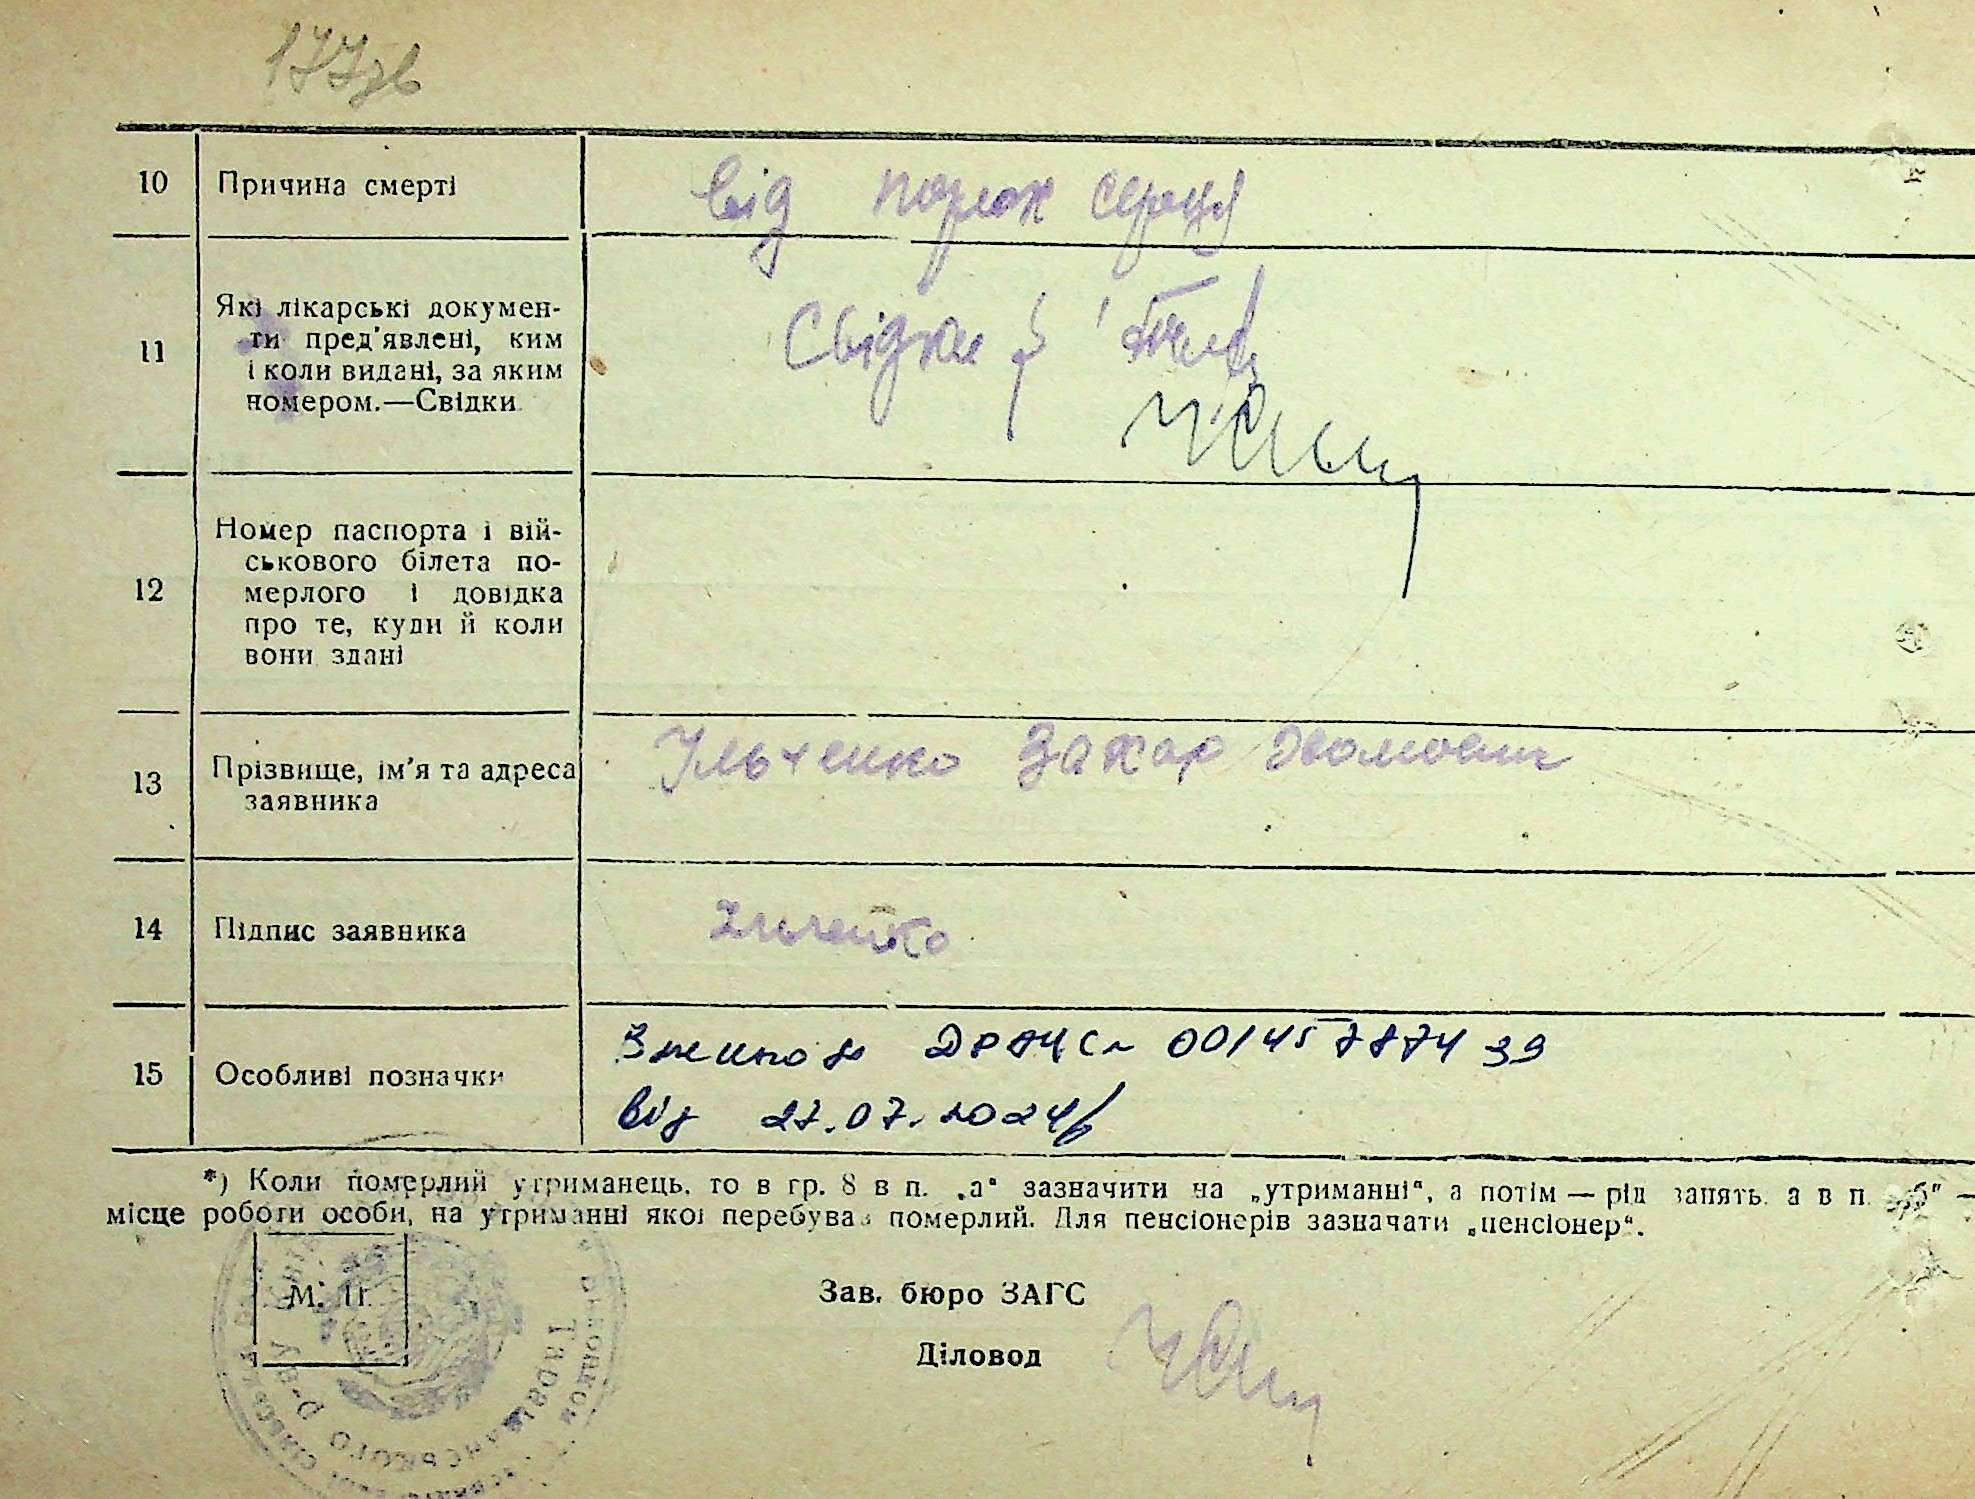 177зв
10 Причина смерті від порок серця
11 Які лікарські докумен-
ти пред'явлені, ким
і коли видані, за яким
номером.—Свідки
Свідки
12 Номер паспорта і вій-
ськового білета по-
мерлого і довідка
про те, куди й коли
вони здані
13 Прізвище, ім'я та адреса
заявника
Ільченко Захар
14 Підпис заявника Ильченко
15 Особливі позначки
ДРАЦС 00145787439
від 27.07.2024р
*) Коли померлий утриманець, то в гр. 8 в п. „а“ зазначити на „утриманні“, а потім — рід занять, а в п. „б“ —
місце роботи особи, на утриманні якої перебував померлий. Для пенсіонерів зазначати „пенсіонер“.
М. П.
Зав. бюро ЗАГС
Діловод